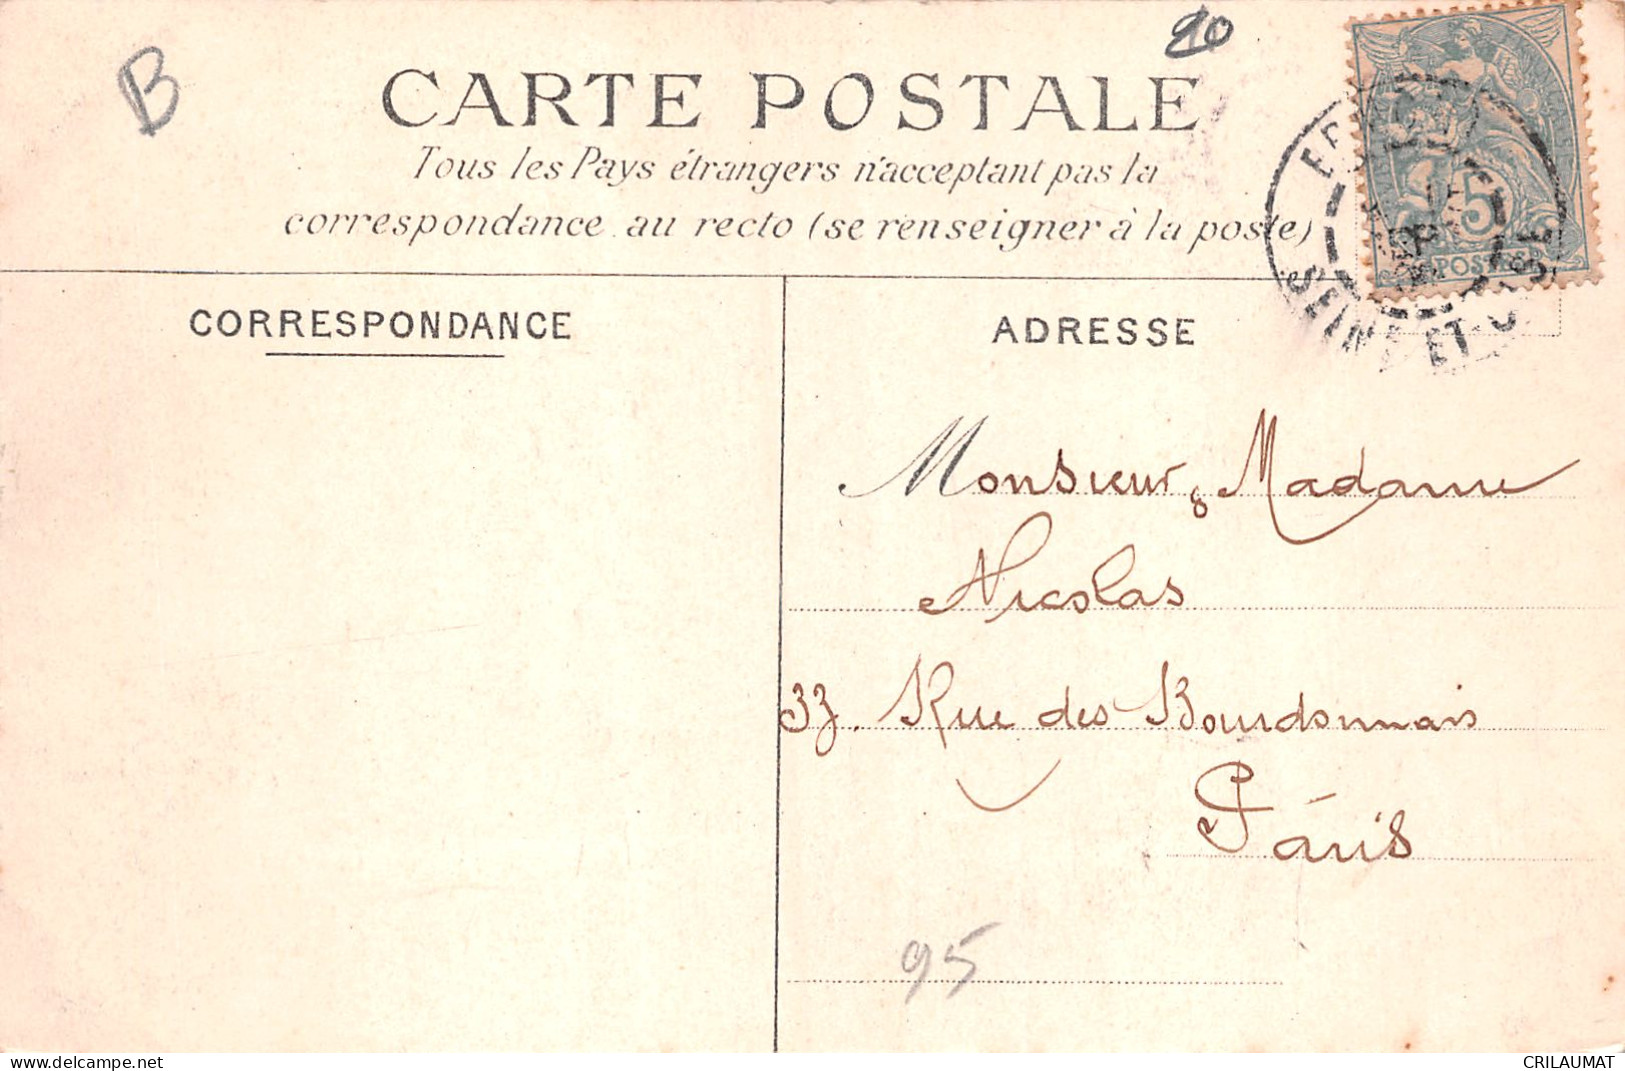 B
20
CARTE POSTALE
Tous les Pays étrangers n'acceptant pas la
correspondance au recto (se renseigner à la poste)
5
POSTES
SEINE ET OISE
CORRESPONDANCE
ADRESSE
Monsieur & Madame
Nicolas
33. Rue des Bourdonnais
Paris
95
delcampe.net
CRILAUMAT